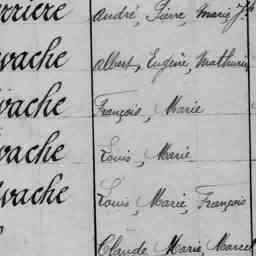 rrière André, Pierre, Marie, Jh
vache Albert, Eugène, Mathurin
vache François, Marie
vache Louis, Marie
vache Louis, Marie, François
Claude Marie, Marcel